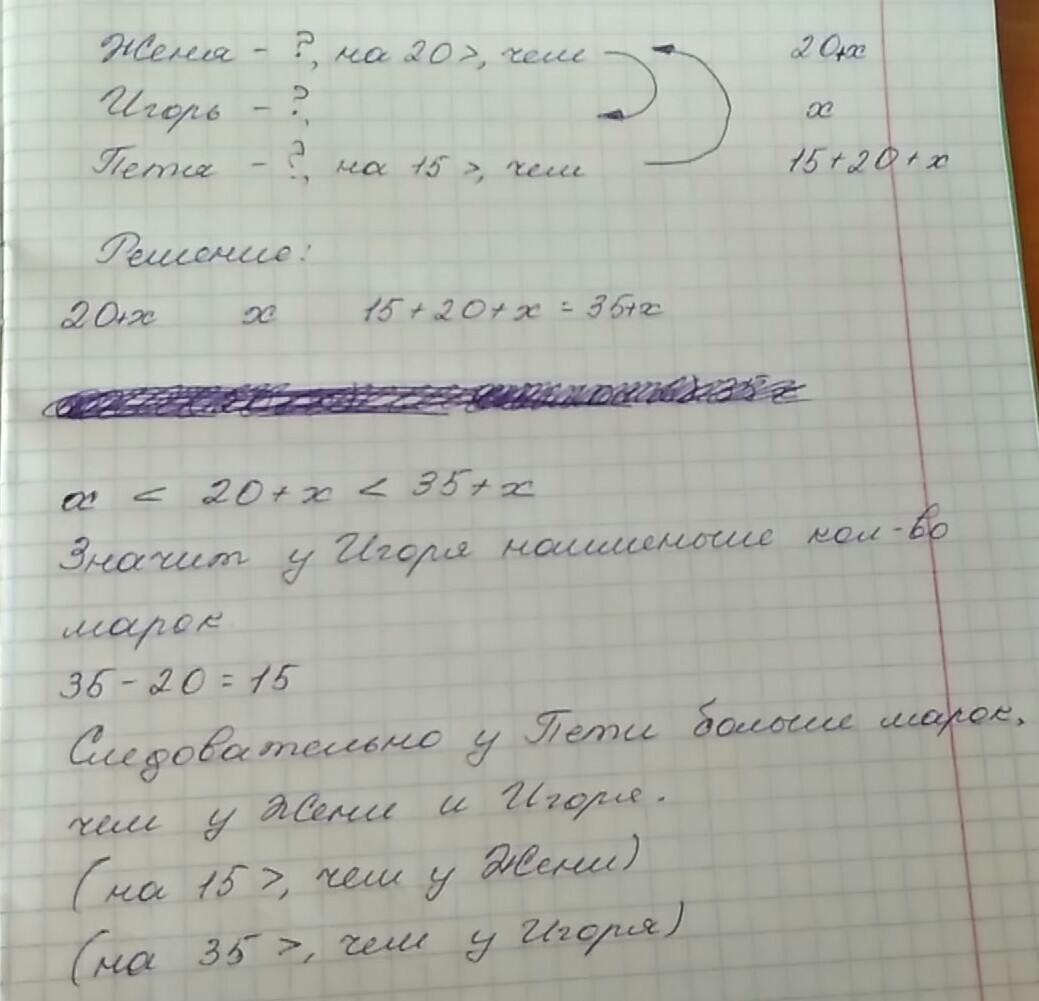 Женя - ?, на 20 >, чем 20+x
Игорь - ?, x
Петя - ?, на 15 >, чем 15+20+x
Решение:
20+x x 15+20+x = 35+x
x < 20+x < 35+x
Значит у Игоря наименьше кол-во
марок
35-20=15
Следовательно у Пети больше марок,
чем у Жени и Игоря.
(на 15 >, чем у Жени)
(на 35 >, чем у Игоря)